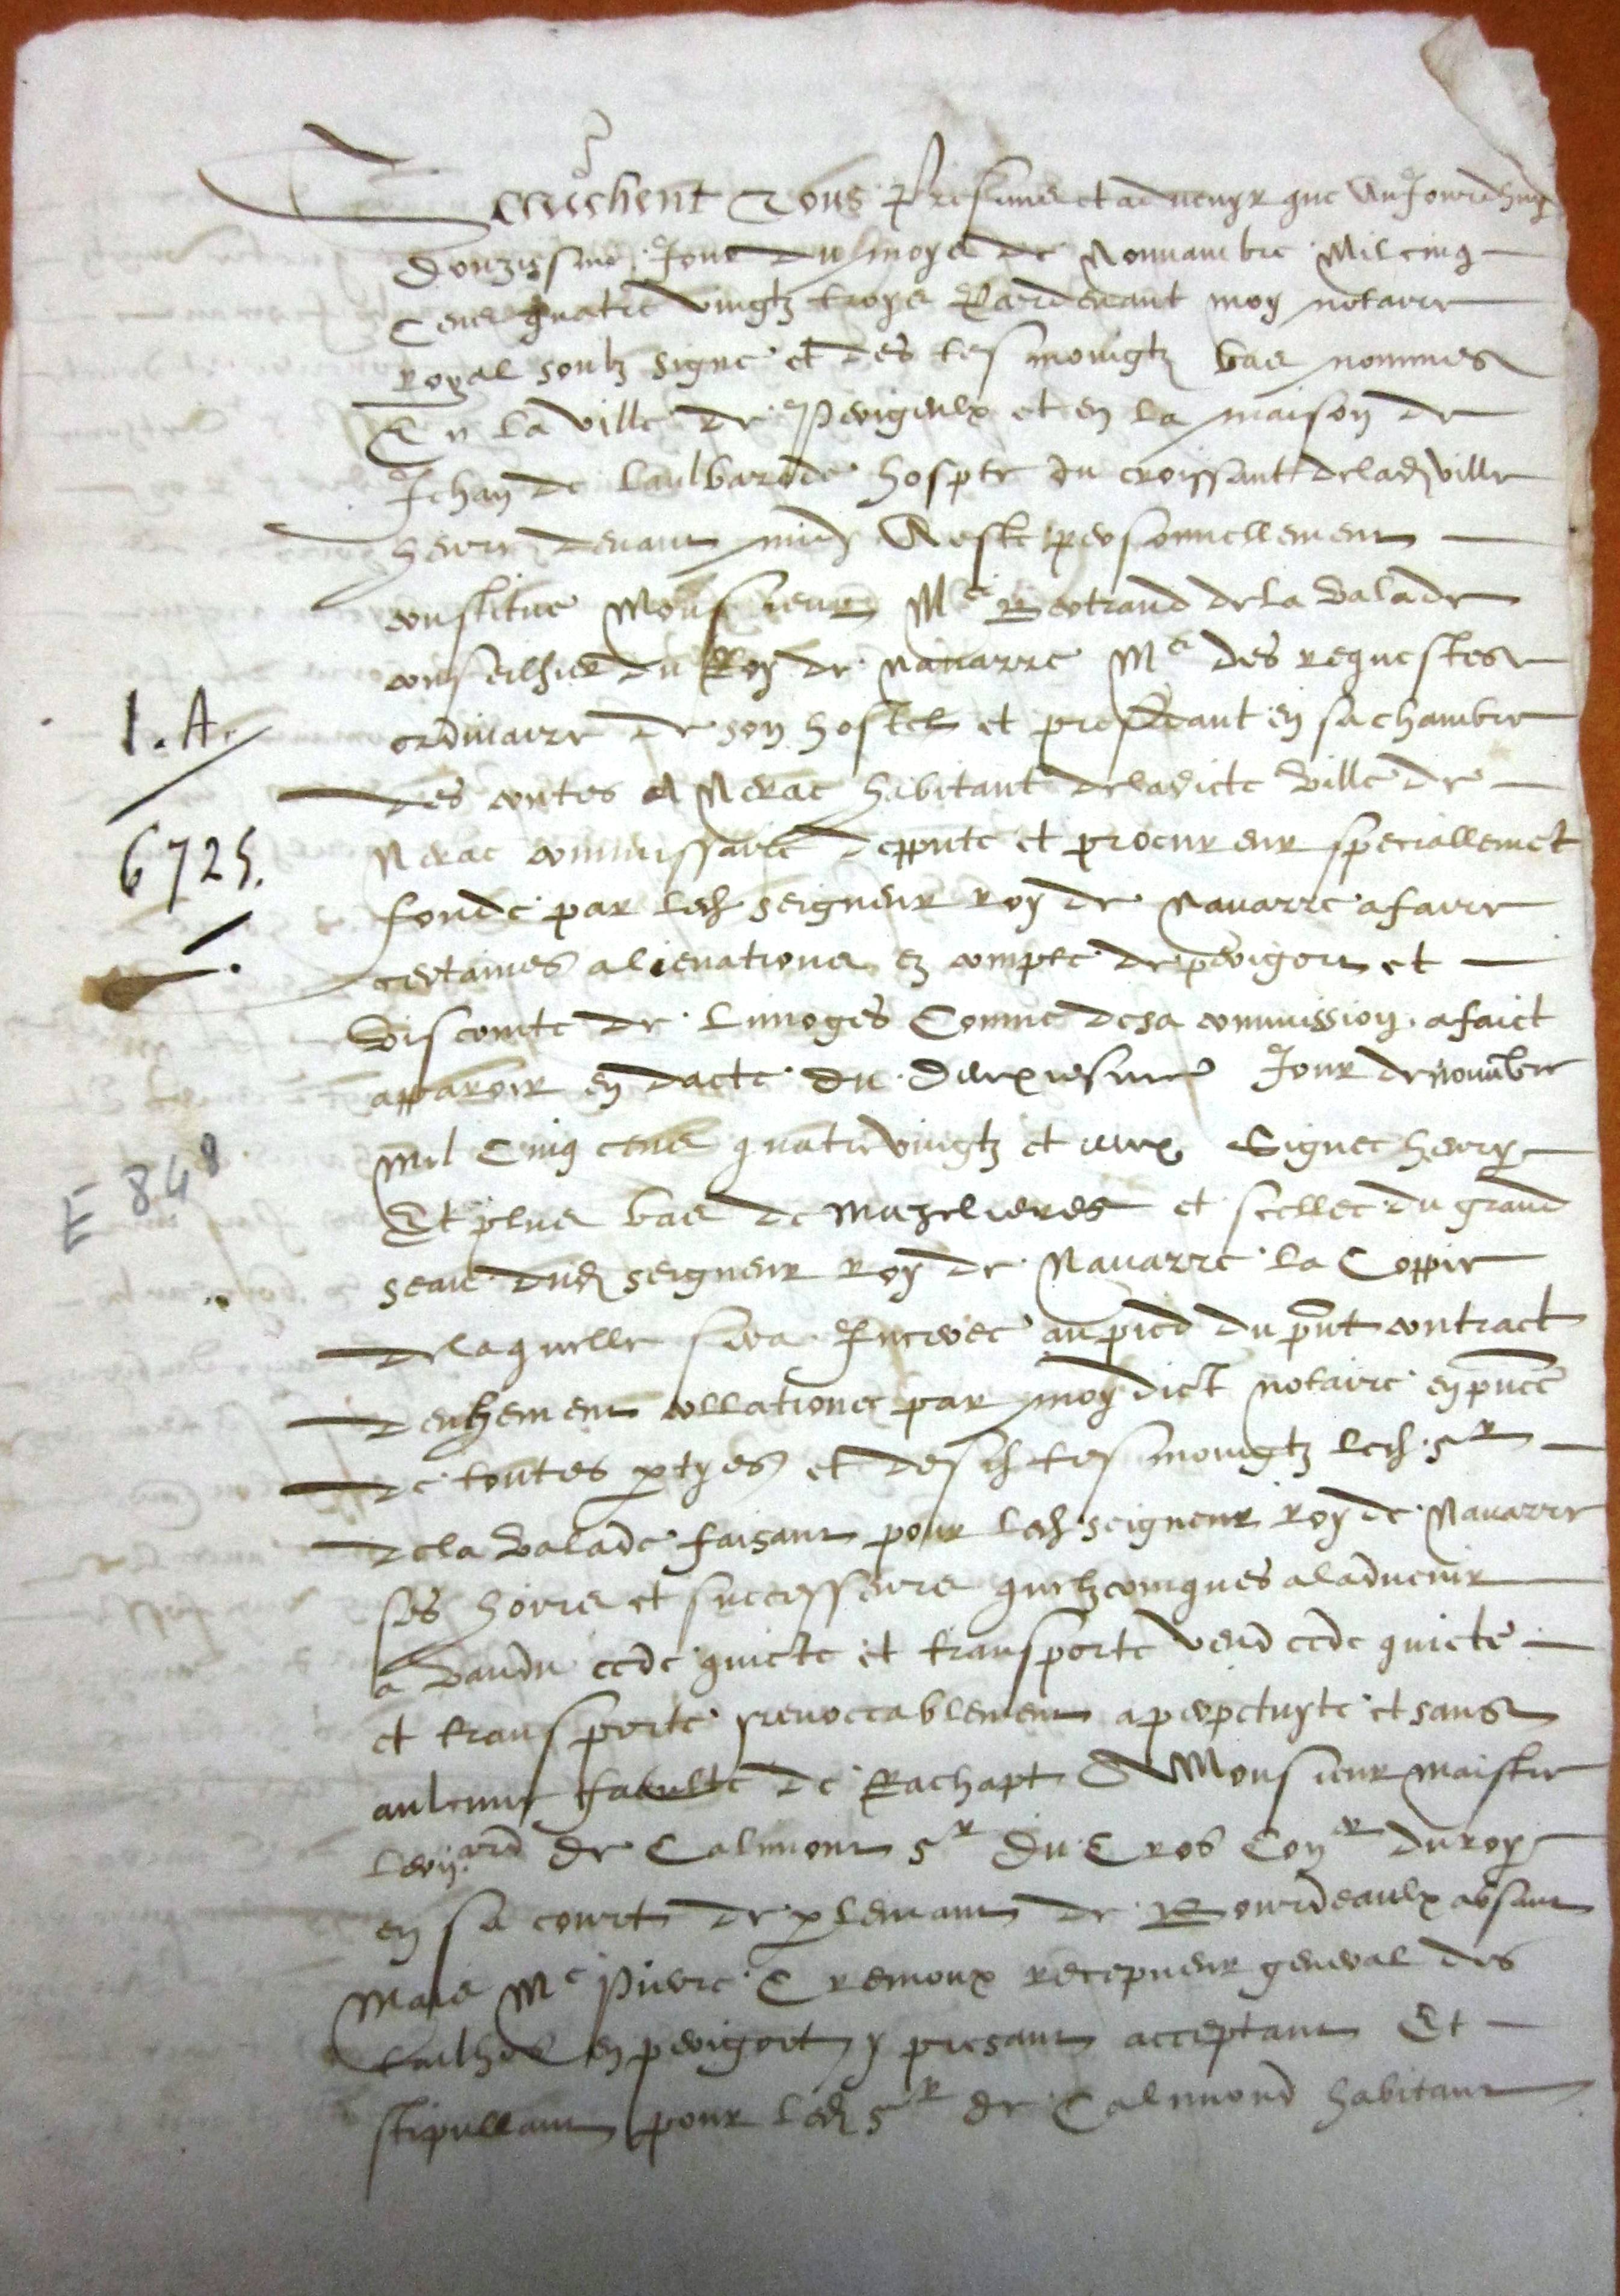 Saichent Tous presens et advenyr que Aujourdhuy
Douziesme Jour du moys de Novambre Mil cinq
Cens quatre vingtz troys Pardevant moy notaire
royal soubz signe et des tesmoingtz bas nommes
En la ville de Perigeulx et en la maison de
Jehan de Laulbarede hospte du croissant de lad ville
heure devant midy A este personnellement
constitue Monsieur Me Bertrand de la Valade
conseilhier du Roy de Navarre Me des requestes
ordinaire de son hostel et president en sa chambre
des contes a Nerac habitant de ladicte ville de
Nerac commissaire deppute et procureur speciallemet
fonde par led seigneur roy de Navarre a faire
certaines alienations ez compte de perigort et
Viscomte de Limoges Comme de sa commission a faict
apparoir en dacte du Jour de novambre
Mil Cinq cens quatre vingtz et Signee henry
Et plus bas de Mazelieres et scellee du grand
seau dud seigneur roy de Navarre la Coppie
de laquelle sera Inceree au pied du pnt contract
deuhement collationee par moy dict notaire en pnce
de toutes partyes et desd tesmoingtz led sr
de la Valade faisant pour led seigneur roy de Navarre
ses hoirs et successeurs quelzcomques a ladvenir
a vandu cede quicte et transporte vend cede quicte
et transporte yrevoccablement a perpetuyte et sans
aulcune faculte de Rachapt A Monsieur maistre
de Calmont sr du Cros Coner du roy
en sa court de parlemant de Bourdeaulx absant
Mais Me Pierre Cremoux recepveur general des
tailhes en perigort y presant acceptant Et
stipullant pour led sr de Calmond habitant
1.A.
6725.
E 848